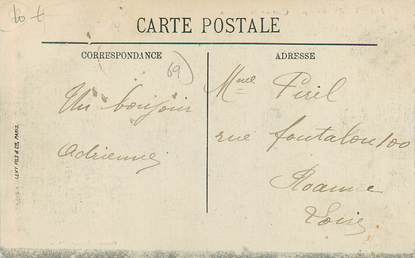 CARTE POSTALE
CORRESPONDANCE
ADRESSE
69
Un bonjour
Adrienne
Mme Piril
rue fontalon 100
Roanne
Loire
LEVY FILS & Cie, PARIS